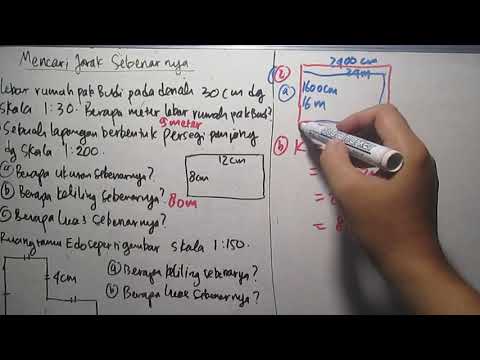 Mencari Jarak Sebenarnya
Lebar rumah pak Budi pada denah 30 cm dg
skala 1:30. Berapa meter lebar rumah pak Budi?
9 meter
Sebuah lapangan berbentuk Persegi panjang
dg skala 1:200.
12cm
8cm
a Berapa ukuran sebenarnya?
b Berapa keliling sebenarnya? 80m
c Berapa luas sebenarnya?
Ruang tamu Edo seperti gambar skala 1:150.
4cm
a Berapa keliling sebenarnya?
b Berapa luas sebenarnya?
2
2400 cm
24 m
a
1600cm
16 m
b K
=
=
= 8